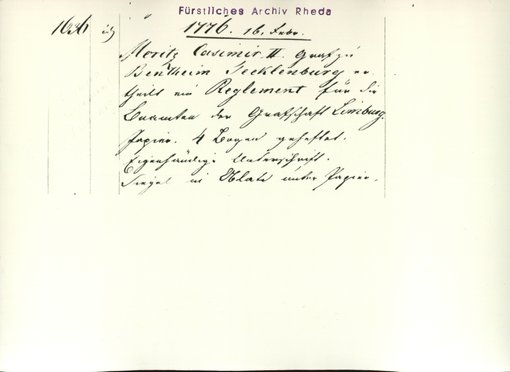 Fürstliches Archiv Rheda
1776. 16. Febr.
Moritz Casimir II. Graf zu
Bentheim Tecklenburg er-
theilt ein Reglement für die
Beamten der Grafschaft Limburg.
Papier. 4 Bogen geheftet.
Eigenhändige Unterschrift.
Siegel in Oblate unter Papier.